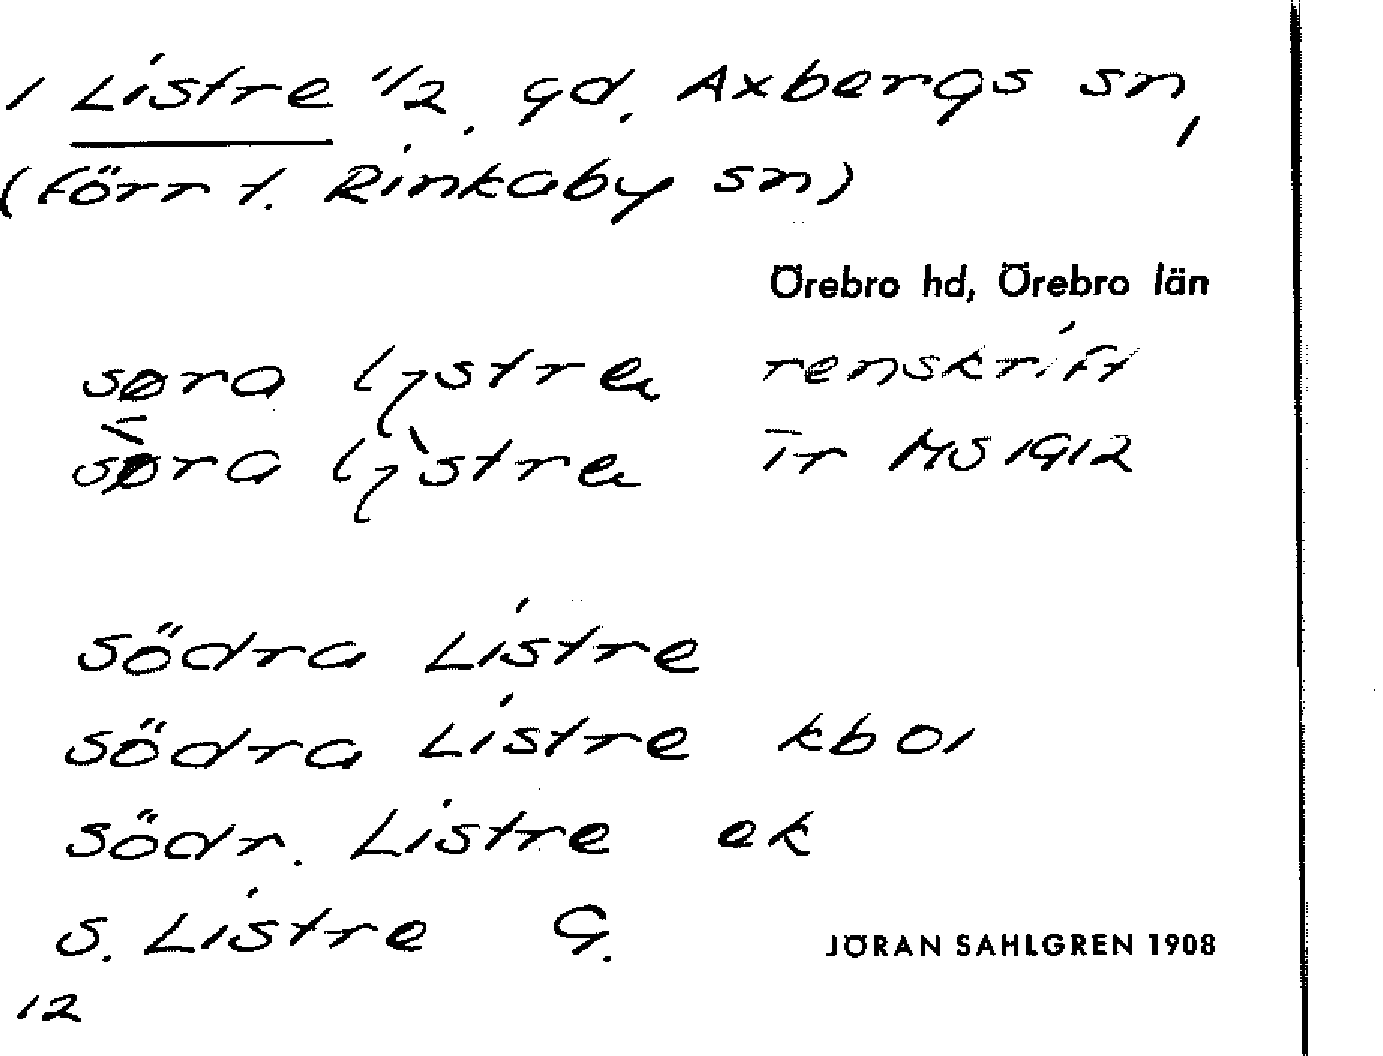 1 Listre 1/2. gd. Axbergs sn,
(förr t. Rinkaby sn)
Örebro hd, Örebro län
renskrift
MS 1912
södra Listre
södra Listre kb 01
södr. Listre ek
S. Listre G.
JÖRAN SAHLGREN 1908
12